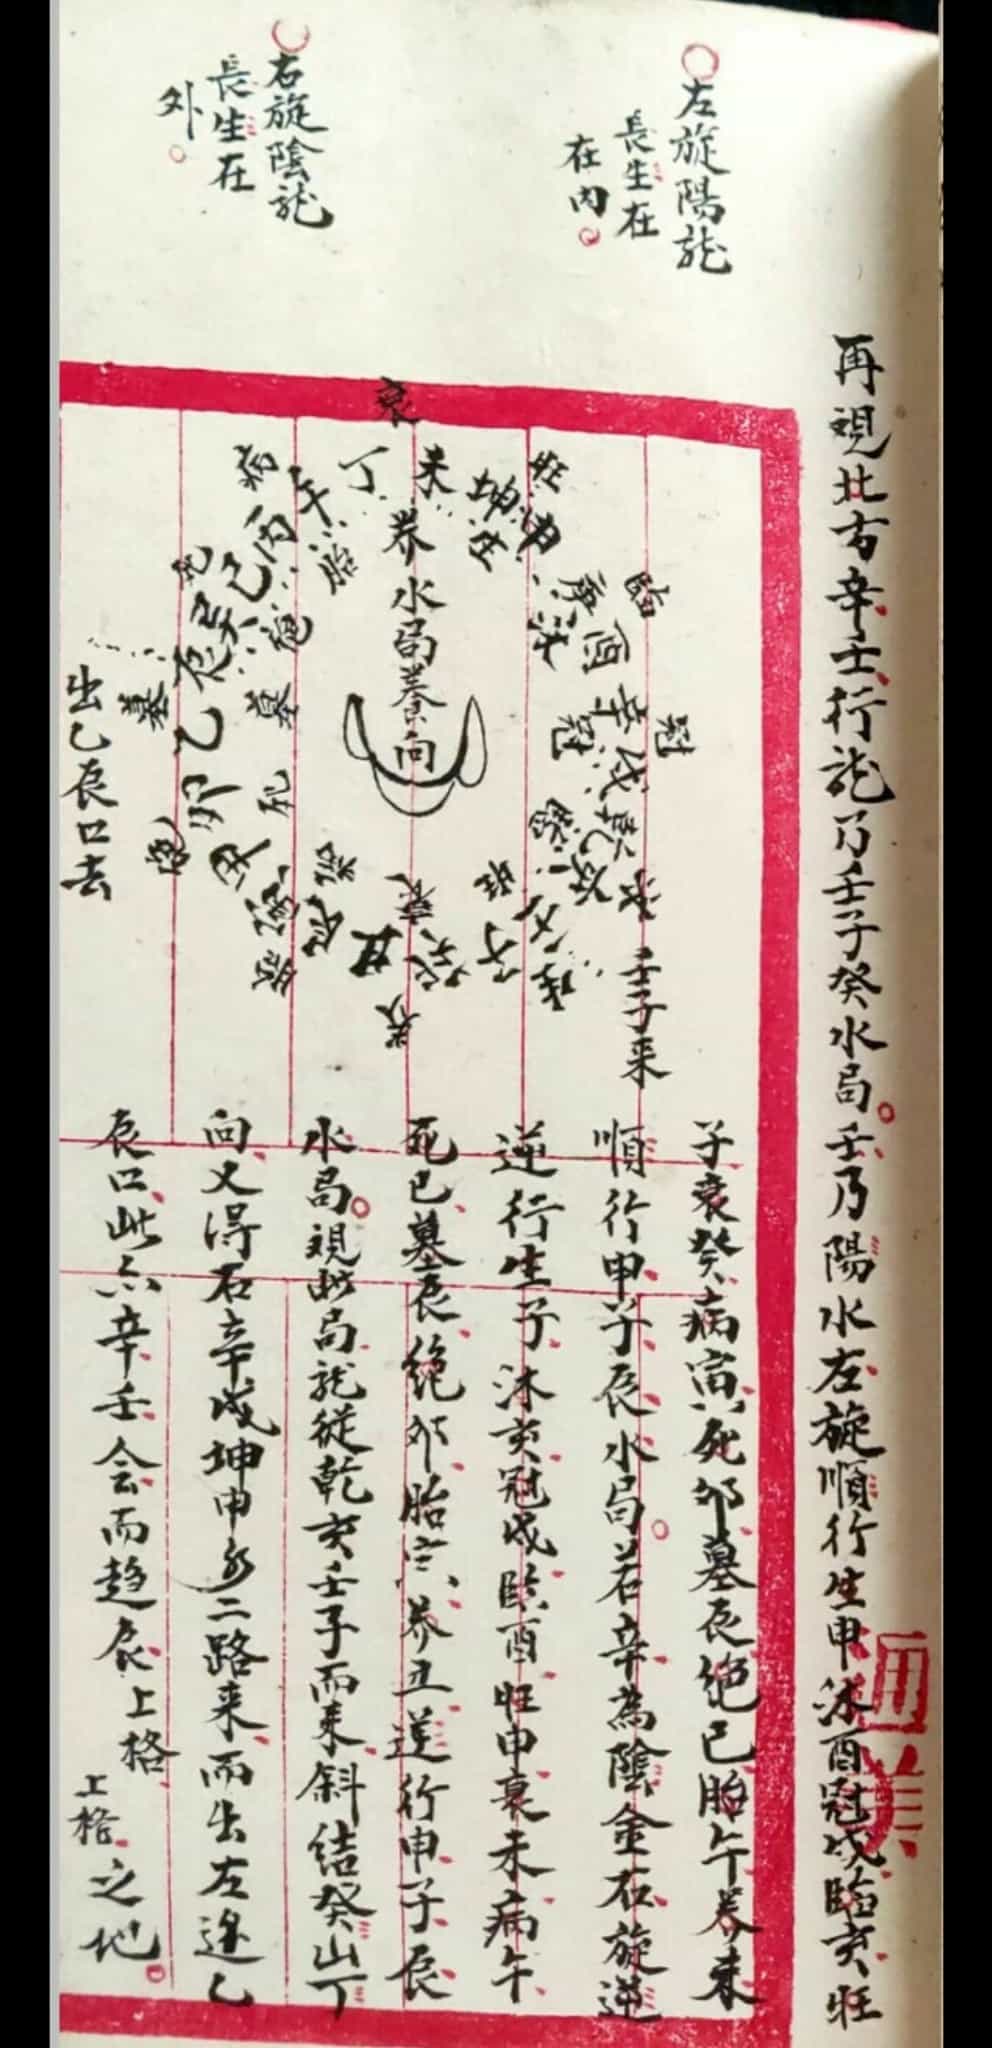 再覌北方辛壬行龍乃壬子癸水局壬乃陽水左旋順行生申沐酉冠戌臨亥旺
子衰癸病寅死卯墓辰绝巳胎午养未
順行申子辰水局若辛為陰金右旋逆
逆行生子沐亥冠戌臨酉旺申衰未病午
死巳墓辰绝卯胎寅养丑逆行申子辰
水局覌此局龍從乾亥壬子而来斜结癸山丁
向又得右辛戌坤申水二路来而出左邊乙
辰口此六辛壬会而趋辰上格
上格之地
左旋陽龍
長生在
在内
右旋陰龍
長生在
外
养水局養向
壬子来
出乙辰口去
衰
旺
坤
申
未
丁
午
病
丙
巳
胎
死
墓
辰
乙
卯
甲
臨
酉
辛
戌
冠
冠
乾
亥
旺
衰
子
癸
丑
养
墓
死